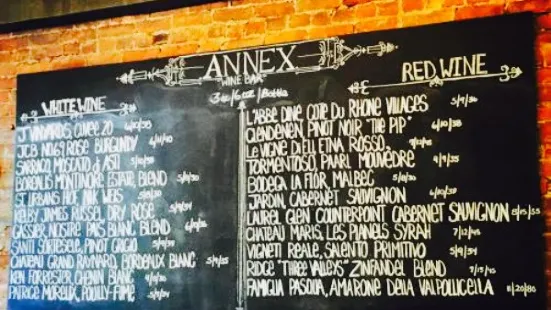 ANNEX
WINE BAR
3oz/6oz/Bottle
WHITE WINE
J VINEYARDS, CUVEE 20 6/10/38
JCB NO.69 ROSE BURGUNDY 6/11/40
SARACCO, MOSCATO d' ASTI 5/10/38
BOREALIS MONTINORE ESTATE, BLEND 5/9/30
ST. URBANS HOF, NIK WEIS 5/9/36
KELBY JAMES RUSSEL, DRY ROSE 5/9/34
GASSIER, NOSTRE PAIS BLANC BLEND 6/9/36
SANTI SORTESELE, PINOT GRIGIO 5/9/34
CHATEAU GRAND RAYNARD, BORDEAUX BLANC 5/9/35
KEN FORRESTER, CHENIN BLANC 4/8/30
PATRICE MOREUX, POUILLY-FUME 5/9/34
RED WINE
L'ABBE DINE COTE DU RHONE VILLAGES 5/9/36
CLENDENEN, PINOT NOIR "THE PIP" 6/10/38
LE VIGNE DI ELI ETNA ROSSO,
TORMENTOSO, PAARL MOUVEDRE 4/9/35
BODEGA LA FLOR, MALBEC 5/8/30
JARDIN CABERNET SAUVIGNON 6/10/38
LAUREL GLEN COUNTERPOINT CABERNET SAUVIGNON 8/15/55
CHATEAU MARIS, LES PLANELS SYRAH 7/12/45
VIGNETI REALE, SALENTO PRIMITIVO 5/9/34
RIDGE "THREE VALLEYS" ZINFANDEL BLEND 7/15/45
FAMIGLIA PASQUA, AMARONE DELLA VALPOLICELLA 11/20/80